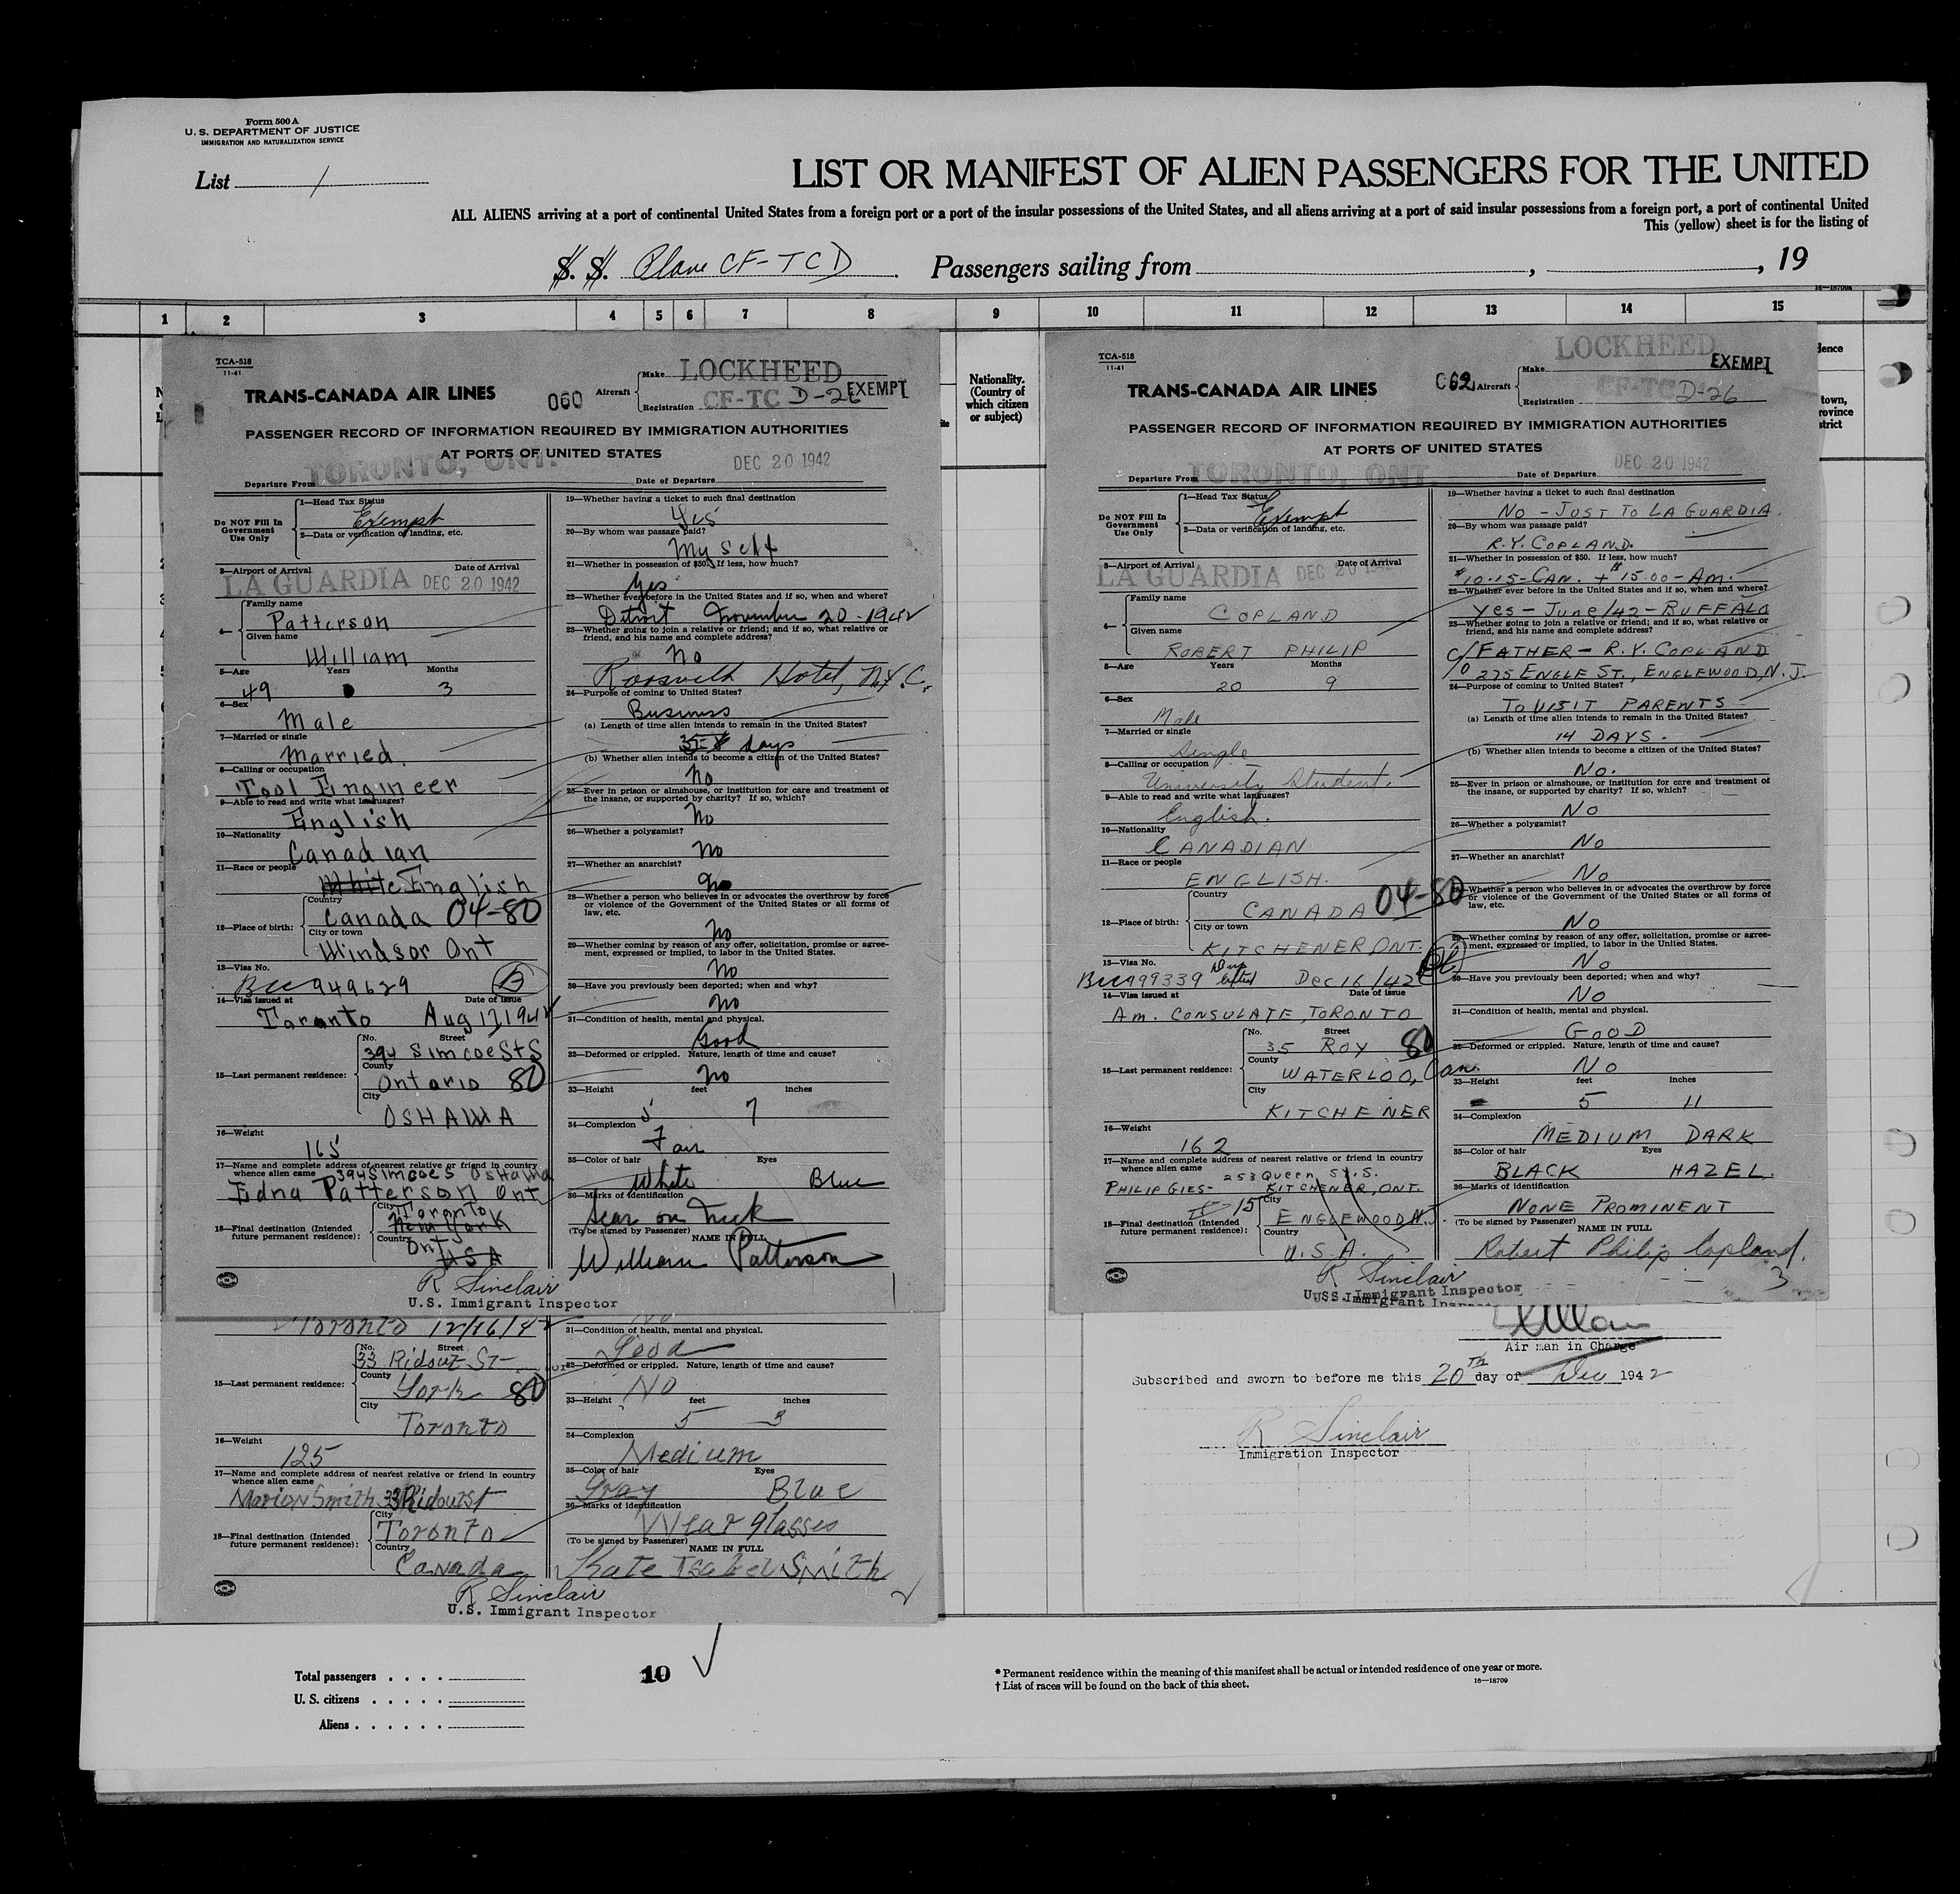 Form 500 A
U. S. DEPARTMENT OF JUSTICE
IMMIGRATION AND NATURALIZATION SERVICE
List 1
LIST OR MANIFEST OF ALIEN PASSENGERS FOR THE UNITED
ALL ALIENS arriving at a port of continental United States from a foreign port or a port of the insular possessions of the United States, and all aliens arriving at a port of said insular possessions from a foreign port, a port of continental United
This (yellow) sheet is for the listing of
S. S. Plane CF-TCD Passengers sailing from , , 19
16—18709
1 2 3 4 5 6 7 8 9 10 11 12 13 14 15
Nationality.
(Country of
which citizen
or subject)
TCA-518
11-41
TRANS-CANADA AIR LINES
060
Aircraft
Make LOCKHEED
Registration CF-TC D-26 EXEMPT
PASSENGER RECORD OF INFORMATION REQUIRED BY IMMIGRATION AUTHORITIES
AT PORTS OF UNITED STATES
Departure From TORONTO, ONT.
Date of Departure DEC 20 1942
Do NOT Fill In
Government
Use Only
1—Head Tax Status
Exempt
2—Data or verification of landing, etc.
3—Airport of Arrival Date of Arrival
LA GUARDIA DEC 20 1942
4—
Family name
Patterson
Given name
William
5—Age Years Months
49 3
6—Sex
Male
7—Married or single
Married.
8—Calling or occupation
Tool Engineer
9—Able to read and write what languages?
English
10—Nationality
Canadian
11—Race or people
White English
12—Place of birth:
Country
Canada 04-80
City or town
Windsor Ont
13—Visa No.
949629 B
14—Visa issued at Date of issue
Toronto Aug
15—Last permanent residence:
No. Street
394 Simcoe St S
County
Ontario 80
City
OSHAWA
16—Weight
165
17—Name and complete address of nearest relative or friend in country
whence alien came 394 Simcoe S Oshawa
Edna Patterson Ont
18—Final destination (Intended
future permanent residence):
City Toronto
New York
Country
Ont USA
R Sinclair
U.S. Immigrant Inspector
19—Whether having a ticket to such final destination
Yes
20—By whom was passage paid?
Myself
21—Whether in possession of $50. If less, how much?
Yes
22—Whether ever before in the United States and if so, when and where?
Detroit November 20-1942
23—Whether going to join a relative or friend; and if so, what relative or
friend, and his name and complete address?
No
Roosvelt Hotel, N.Y.C.
24—Purpose of coming to United States?
Business
(a) Length of time alien intends to remain in the United States?
days
(b) Whether alien intends to become a citizen of the United States?
No
25—Ever in prison or almshouse, or institution for care and treatment of
the insane, or supported by charity? If so, which?
No
26—Whether a polygamist?
No
27—Whether an anarchist?
No
28—Whether a person who believes in or advocates the overthrow by force
or violence of the Government of the United States or all forms of
law, etc.
No
29—Whether coming by reason of any offer, solicitation, promise or agree-
ment, expressed or implied, to labor in the United States.
No
30—Have you previously been deported; when and why?
No
31—Condition of health, mental and physical.
Good
32—Deformed or crippled. Nature, length of time and cause?
No
33—Height feet inches
5 7
34—Complexion
Fair
35—Color of hair Eyes
White Blue
36—Marks of identification
Scar on neck
(To be signed by Passenger) NAME IN FULL
William Patterson
1
Toronto 12/16/42
15—Last permanent residence:
No. Street
33 Ridout St
County
York 80
City
Toronto
16—Weight
125
17—Name and complete address of nearest relative or friend in country
whence alien came
Marion Smith 33 Ridout St
18—Final destination (Intended
future permanent residence):
City
Toronto
Country
Canada
R Sinclair
U.S. Immigrant Inspector
No
31—Condition of health, mental and physical.
Good
32—Deformed or crippled. Nature, length of time and cause?
No
33—Height feet inches
5 3
34—Complexion
Medium
35—Color of hair Eyes
Gray Blue
36—Marks of identification
Wear glasses
(To be signed by Passenger) NAME IN FULL
Kate Isabel Smith
2
TCA-518
11-41
TRANS-CANADA AIR LINES
062
Aircraft
Make LOCKHEED
EXEMPT
Registration CF-TC D-26
PASSENGER RECORD OF INFORMATION REQUIRED BY IMMIGRATION AUTHORITIES
AT PORTS OF UNITED STATES
Departure From TORONTO, ONT.
Date of Departure DEC 20 1942
Do NOT Fill In
Government
Use Only
1—Head Tax Status
Exempt
2—Data or verification of landing, etc.
3—Airport of Arrival Date of Arrival
LA GUARDIA DEC 20 1942
4—
Family name
COPLAND
Given name
ROBERT PHILIP
5—Age Years Months
20 9
6—Sex
Male
7—Married or single
Single
8—Calling or occupation
University Student.
9—Able to read and write what languages?
English.
10—Nationality
CANADIAN
11—Race or people
ENGLISH.
12—Place of birth:
Country
CANADA 04-80
City or town
KITCHENER, ONT.
13—Visa No.
999339 Dec 16/42
14—Visa issued at Date of issue
Am. CONSULATE, TORONTO
15—Last permanent residence:
No. Street
35 ROY 80
County
WATERLOO, Can.
City
KITCHENER
16—Weight
162
17—Name and complete address of nearest relative or friend in country
whence alien came 253 Queen St. S.
PHILIP GIES- KITCHENER, ONT.
18—Final destination (Intended
future permanent residence):
15 City
ENGLEWOOD N.J.
Country
U.S.A.
R Sinclair
U.S. Immigrant Inspector
19—Whether having a ticket to such final destination
NO - JUST TO LA GUARDIA.
20—By whom was passage paid?
R.Y. COPLAND.
21—Whether in possession of $50. If less, how much?
$10.15-CAN. + $15.00-Am.
22—Whether ever before in the United States and if so, when and where?
Yes - June/42 - BUFFALO
23—Whether going to join a relative or friend; and if so, what relative or
friend, and his name and complete address?
c/o FATHER - R.Y. COPLAND
275 ENGLE ST., ENGLEWOOD, N.J.
24—Purpose of coming to United States?
TO VISIT PARENTS
(a) Length of time alien intends to remain in the United States?
14 DAYS.
(b) Whether alien intends to become a citizen of the United States?
No.
25—Ever in prison or almshouse, or institution for care and treatment of
the insane, or supported by charity? If so, which?
No
26—Whether a polygamist?
No
27—Whether an anarchist?
No
28—Whether a person who believes in or advocates the overthrow by force
or violence of the Government of the United States or all forms of
law, etc.
No
29—Whether coming by reason of any offer, solicitation, promise or agree-
ment, expressed or implied, to labor in the United States.
No
30—Have you previously been deported; when and why?
No
31—Condition of health, mental and physical.
GOOD
32—Deformed or crippled. Nature, length of time and cause?
No
33—Height feet inches
5 11
34—Complexion
MEDIUM DARK
35—Color of hair Eyes
BLACK HAZEL.
36—Marks of identification
NONE PROMINENT
(To be signed by Passenger) NAME IN FULL
Robert Philip Copland.
3
Air man in Charge
Subscribed and sworn to before me this 20th day of Dec 1942
R Sinclair
Immigration Inspector
Total passengers . . . .
U. S. citizens . . . . .
Aliens . . . . . .
10
* Permanent residence within the meaning of this manifest shall be actual or intended residence of one year or more.
† List of races will be found on the back of this sheet.
16—18709